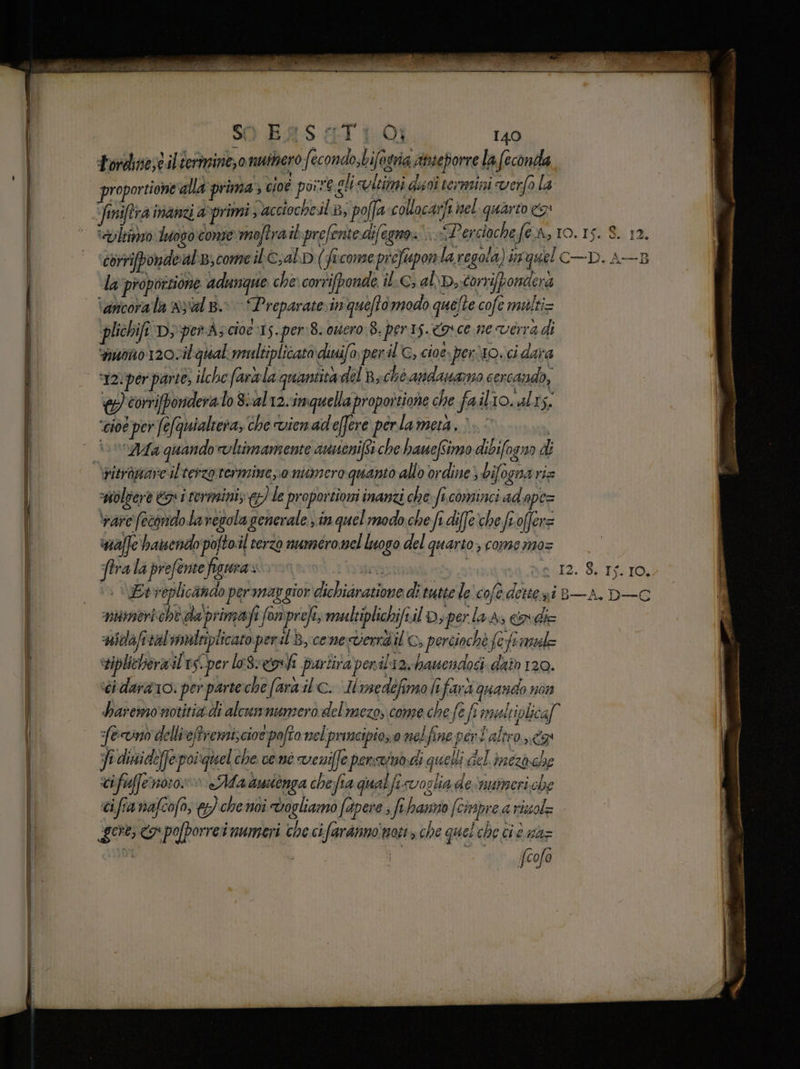 140
l'ordine, è il termine, o numero secondo, bisogna anteporre la seconda
proportione alla prima, cioè porre gli vltimi duoi termini verso la
sinistra inanzi a primi, acciocheil B, possa collocarsi nel quarto &
vltimo luogo come mostra il presente disegno. Percioche se A, 10. 15. 8. 12.
corrisponde al B, come il C, al D (sicome presupon la regola) in quel C—D. A—B
la proportione adunque che corrisponde il C, al D, corrispondera
ancora la A, al B. Preparate in questo modo queste cose multi=
plichisi D, per A, cioè 15. per 8. ouero 8. per 15. & ce ne verrà di
nuouo 120. il qual multiplicato diuiso per il C, cioe per 10. ci dara
12. per parte, ilche sara la quantita del B, che andauamo cercando,
&) corrispondera lo 8. al 12. in quella proportione che fa il 10. al 15.
cioè per sesquialtera, che vien ad essere per la meta.
Ma quando vltimamente auuenissi che hauessimo dibisogno di
ritrouare il terzo termine, o numero quanto allo ordine, bisogna ri=
uolgere & i termini, &) le proportioni inanzi che si cominci ad ope=
rare secondo la regola generale, in quel modo che si disse che si osser=
uasse hauendo posto il terzo numero nel luogo del quarto, come mo=
stra la presente figura. 12. 8. 15. 10.
Et replicando per maggior dichiaratione di tutte le cose dette, i B—A. D—C
numeri che da prima si son presi, multiplichisi il D, per la A, & di=
uidasi tal multiplicato per il B, ce ne verrà il C, percioche se si mul=
tiplichera il 15. per lo 8. & si partira per il 12. hauendoci dato 120.
ci dara 10. per parte che sara il C. Il medesimo si farà quando non
haremo notitia di alcun numero del mezo, come che se si multiplicas
se vno delli estremi, cioè posto nel principio, o nel fine per l'altro, &
si diuidesse poi quel che ce ne venisse per vno di quelli del mezo che
ci fusse noto. Ma auuenga che sia qual si voglia de numeri che
ci sia nascoso, &) che noi vogliamo sapere, si hanno sempre a riuol=
gere, & posporre i numeri che ci faranno noti, che quel che ci è na=
scoso